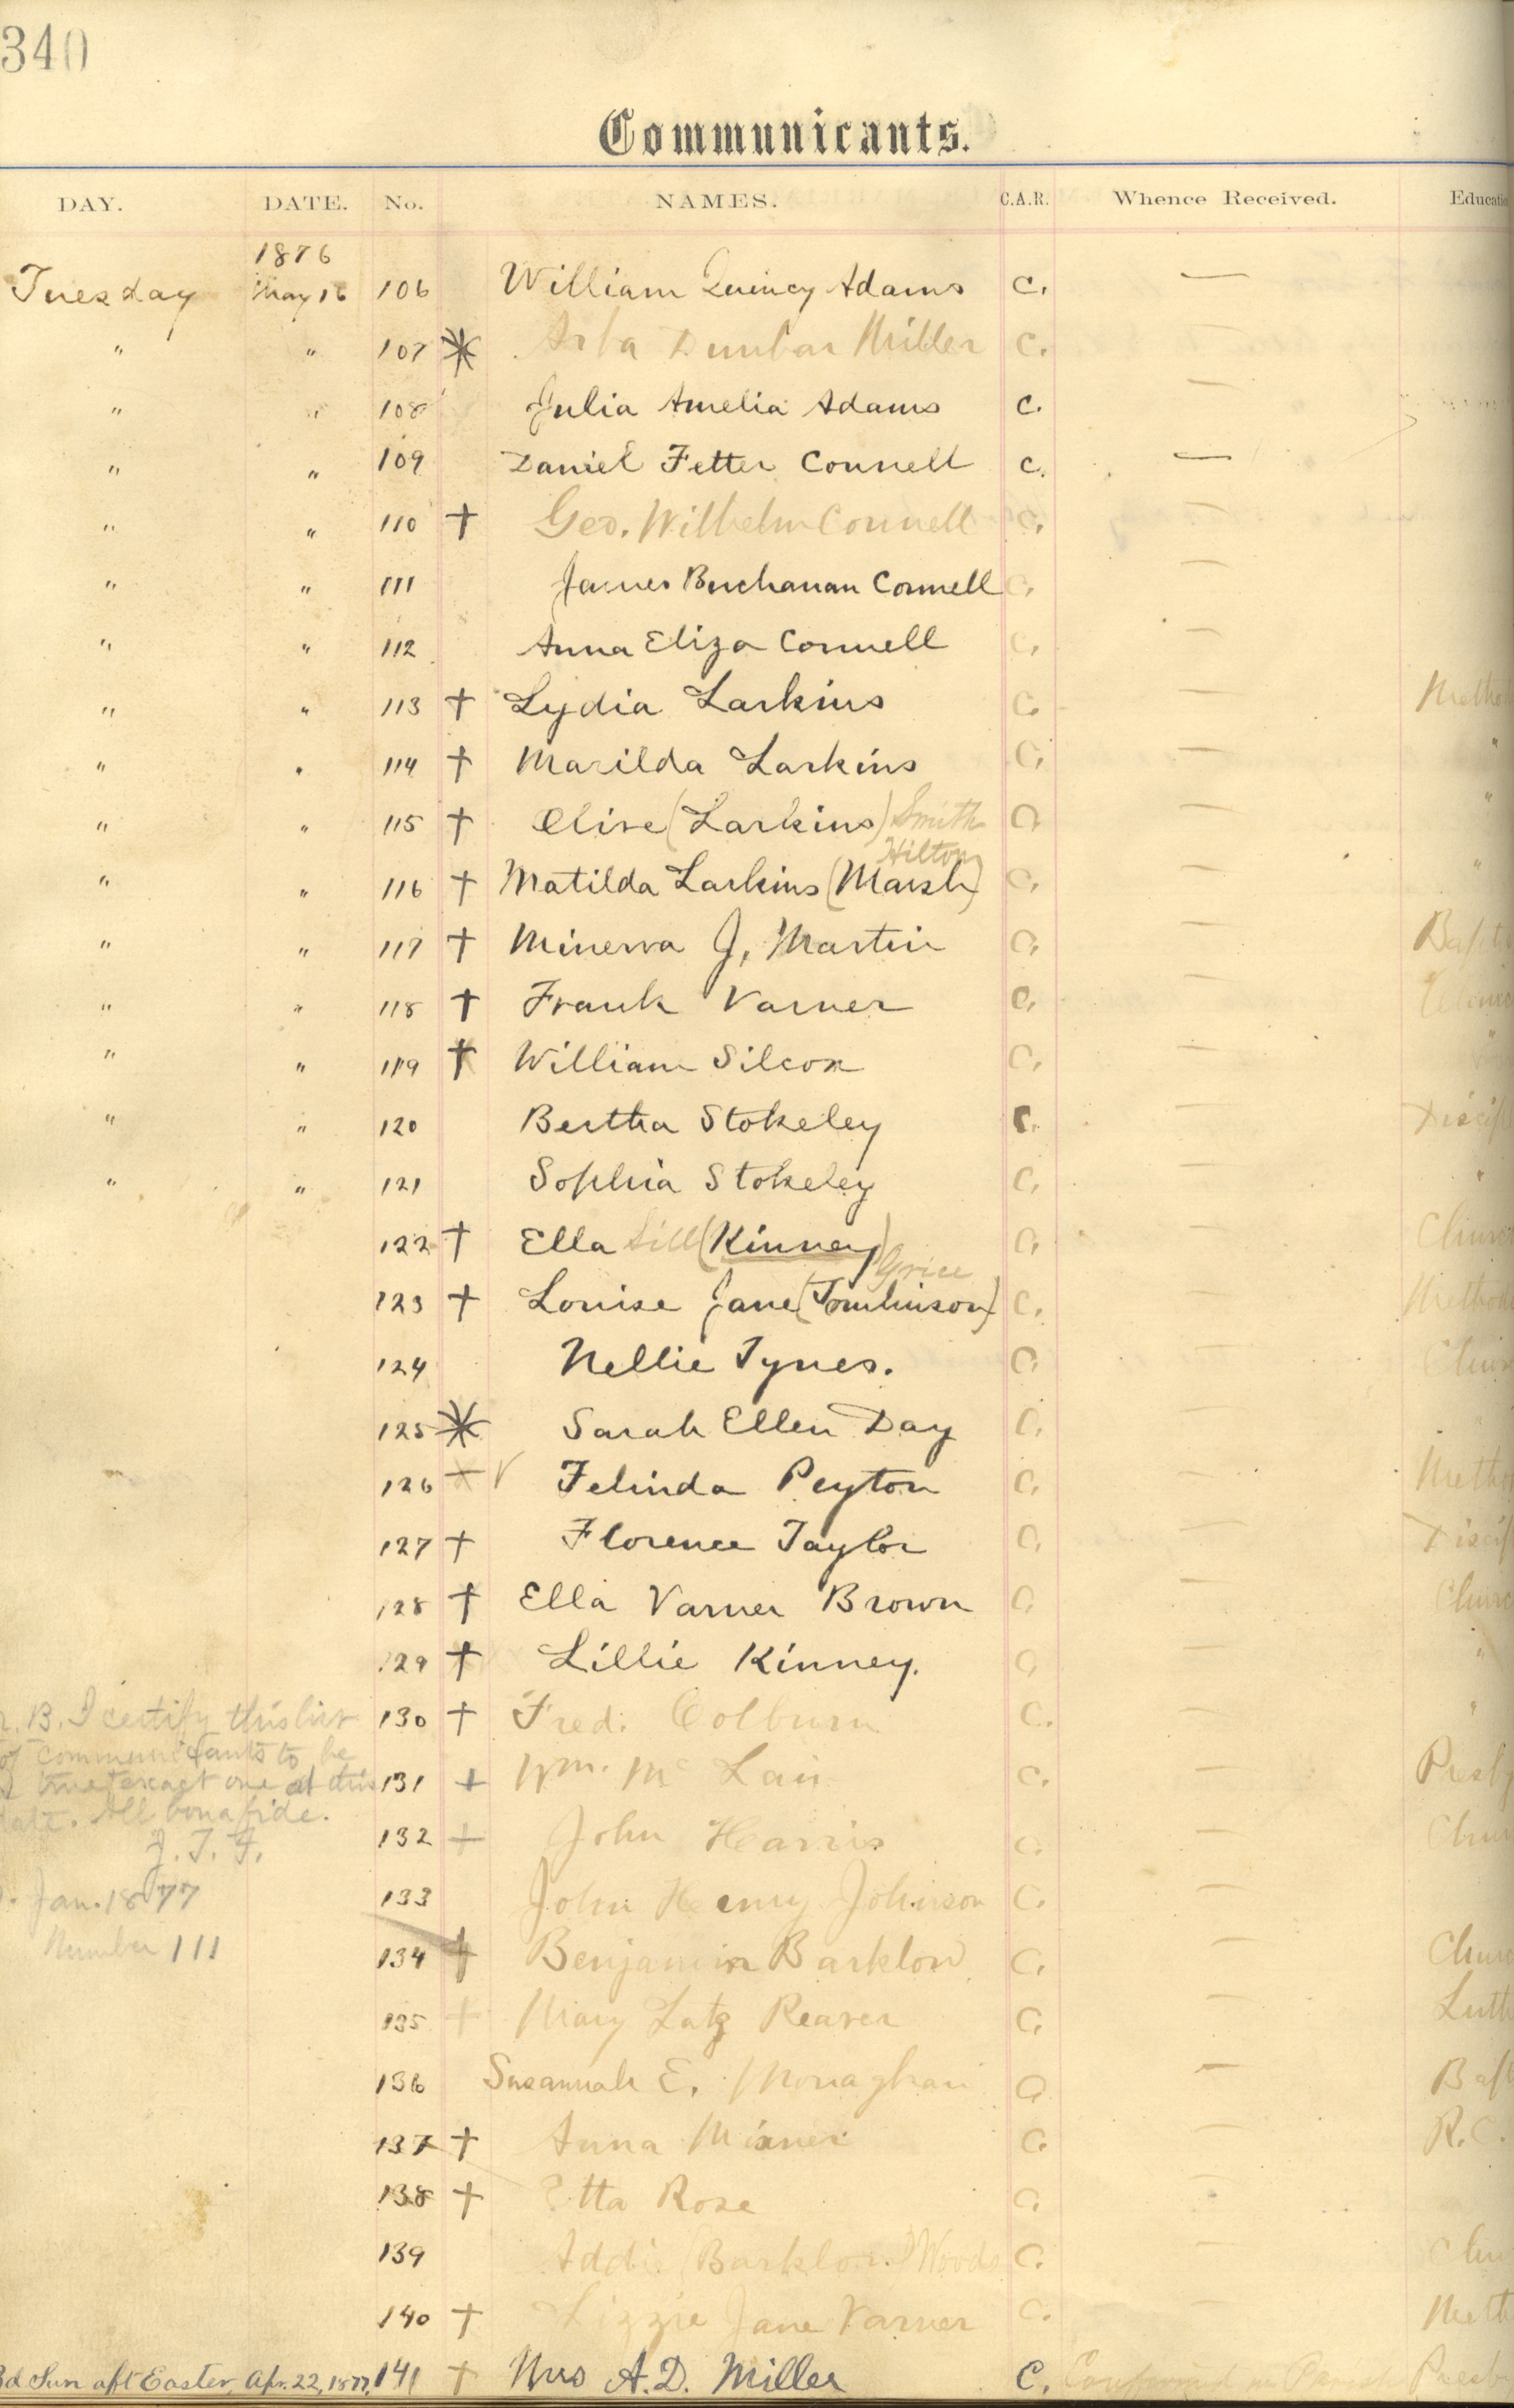 340
Communicants.
DAY. DATE. No. NAMES. C.A.R. Whence Received.
1876
Tuesday May 16 106 William Quincy Adams C. —
" " 107 Arba Dunbar Miller C. —
" " 108 Julia Amelia Adams C. —
" " 109 Daniel Fetter Connell C. —
" " 110 † Geo. Wilhelm Connell C. —
" " 111 James Buchanan Connell C. —
" " 112 Anna Eliza Connell C. —
" " 113 † Lydia Larkins C. —
" " 114 † Marilda Larkins C. — "
" " 115 † Olive (Larkins) Smith C. — "
Hilton
" " 116 † Matilda Larkins (Marsh) C. — "
" " 117 † Minerva J. Martin C. —
" " 118 † Frank Varner C. —
" " 119 † William Silcox C. — "
" " 120 Bertha Stokeley C. —
" " 121 Sophia Stokeley C. — "
122 † Ella Sill (Kinney) C. —
Grice
123 † Louise Jane (Tomlinson) C. —
124 Nellie Tynes. C. —
125 Sarah Ellen Day C. — "
126 Felinda Peyton C. —
127 † Florence Taylor C. —
128 † Ella Varner Brown C. —
129 † Lillie Kinney. C. — "
130 † Fred. Colburn C. — "
131 † Wm. Mc Lain C. —
132 † John Harris C. —
133 John Henry Johnson C. —
134 † Benjamin Barklow C. —
135 † Mary Latz Reaver C. —
136 Susannah E. Monaghan C. —
137 † Anna Mixner C. — R.C.
138 † Etta Rose C. —
139 Addie (Barklow) Woods C. —
140 † Lizzie Jane Varner C. —
3d Sun aft Easter, Apr. 22, 1877, 141 † Mrs A.D. Miller C.
B. I certify this list
of communicants to be
true & exact one at this
date. All bona fide.
J. T. F.
Jan. 1877
Number 111